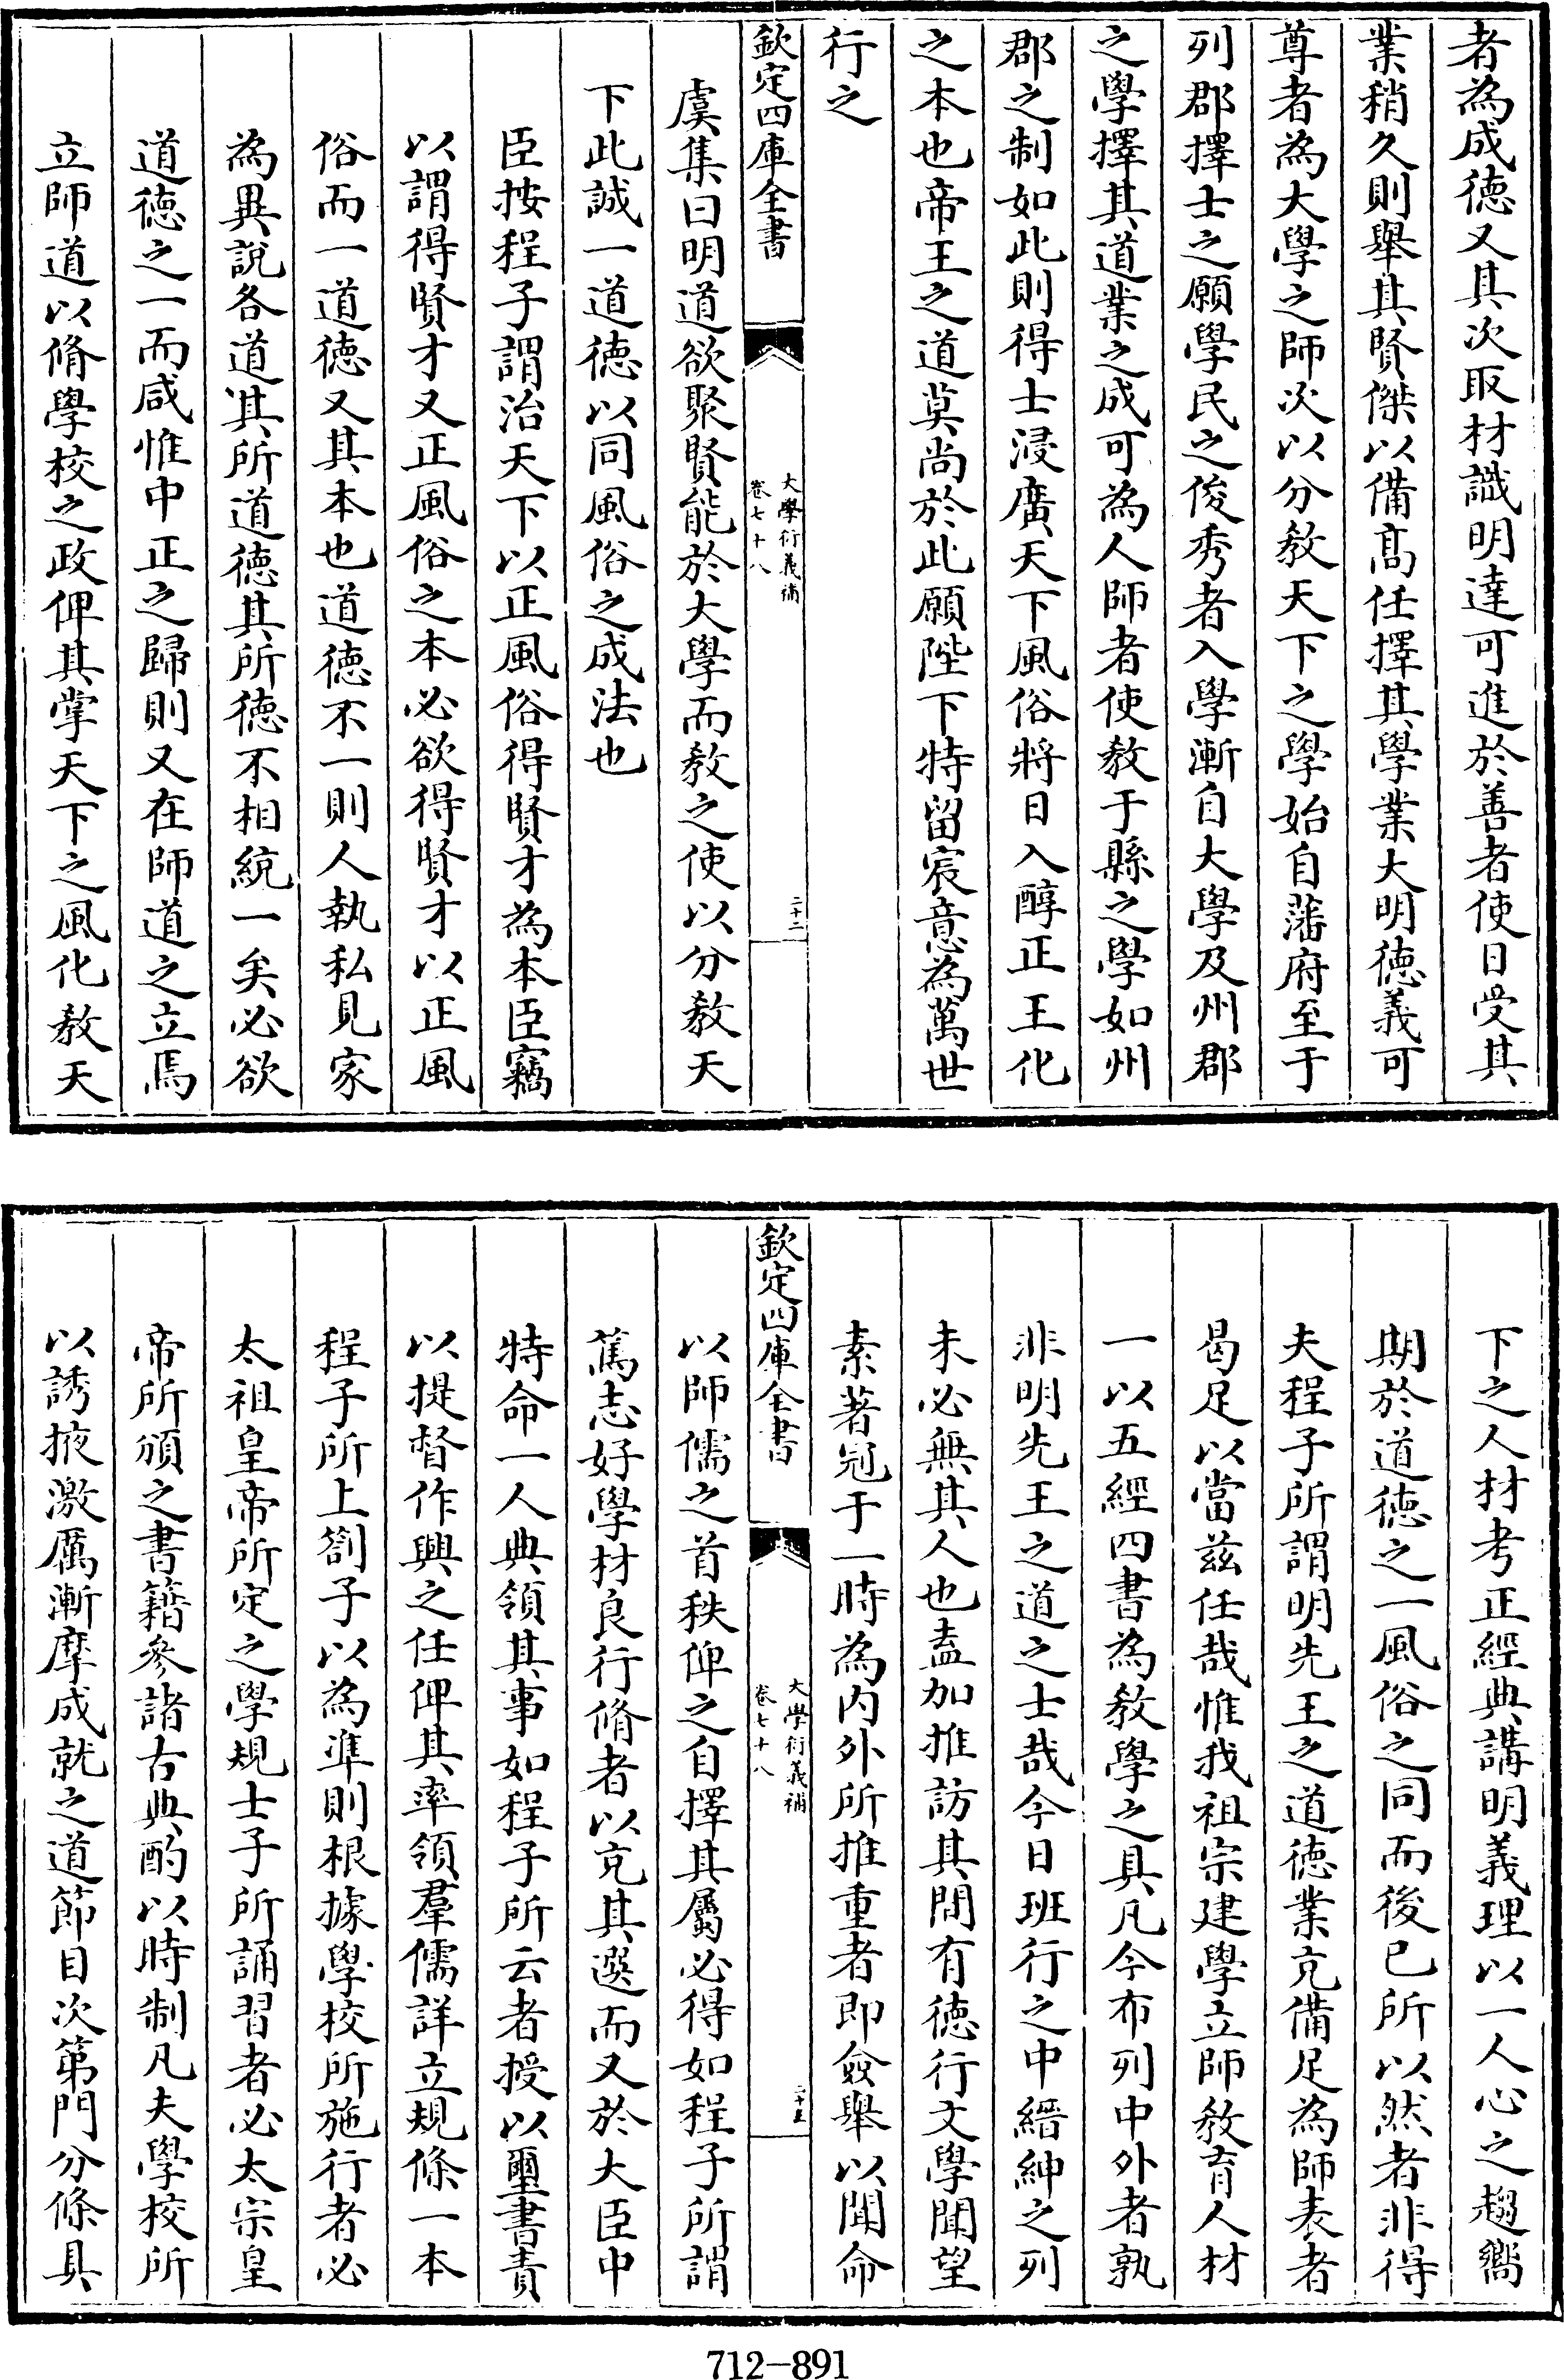 者為成徳又其次取材識明達可進於善者使日受其
業稍久則舉其賢傑以備髙任擇其學業大明徳義可
尊者為大學之師次以分教天下之學始自藩府至于
列郡擇士之願學民之俊秀者入學漸自大學及州郡
之學擇其道業之成可為人師者使教于縣之學如州
郡之制如此則得士浸廣天下風俗將日入醇正王化
之本也帝王之道莫尚於此願陛下特留宸意為萬世
行之
欽定四庫全書
大學衍義補
卷七十八
二十二
虞集曰明道欲聚賢能於大學而教之使以分教天
下此誠一道徳以同風俗之成法也
臣按程子謂治天下以正風俗得賢才為本臣竊
以謂得賢才又正風俗之本必欲得賢才以正風
俗而一道徳又其本也道徳不一則人執私見家
為異說各道其所道徳其所徳不相統一矣必欲
道徳之一而咸惟中正之歸則又在師道之立焉
立師道以脩學校之政俾其掌天下之風化教天
下之人材考正經典講明義理以一人心之趨嚮
期於道徳之一風俗之同而後已所以然者非得
夫程子所謂明先王之道徳業充備足為師表者
曷足以當兹任哉惟我祖宗建學立師教育人材
一以五經四書為教學之具凡今布列中外者孰
非明先王之道之士哉今日班行之中縉紳之列
未必無其人也盍加推訪其間有徳行文學聞望
素著冠于一時為内外所推重者即僉舉以聞命
欽定四庫全書
大學衍義補
卷七十八
二十三
以師儒之首秩俾之自擇其屬必得如程子所謂
篤志好學材良行脩者以充其選而又於大臣中
特命一人典領其事如程子所云者授以璽書責
以提督作興之任俾其率領羣儒詳立規條一本
程子所上劄子以為準則根據學校所施行者必
太祖皇帝所定之學規士子所誦習者必太宗皇
帝所頒之書籍參諸古典酌以時制凡夫學校所
以誘掖激厲漸摩成就之道節目次第門分條具
712-891